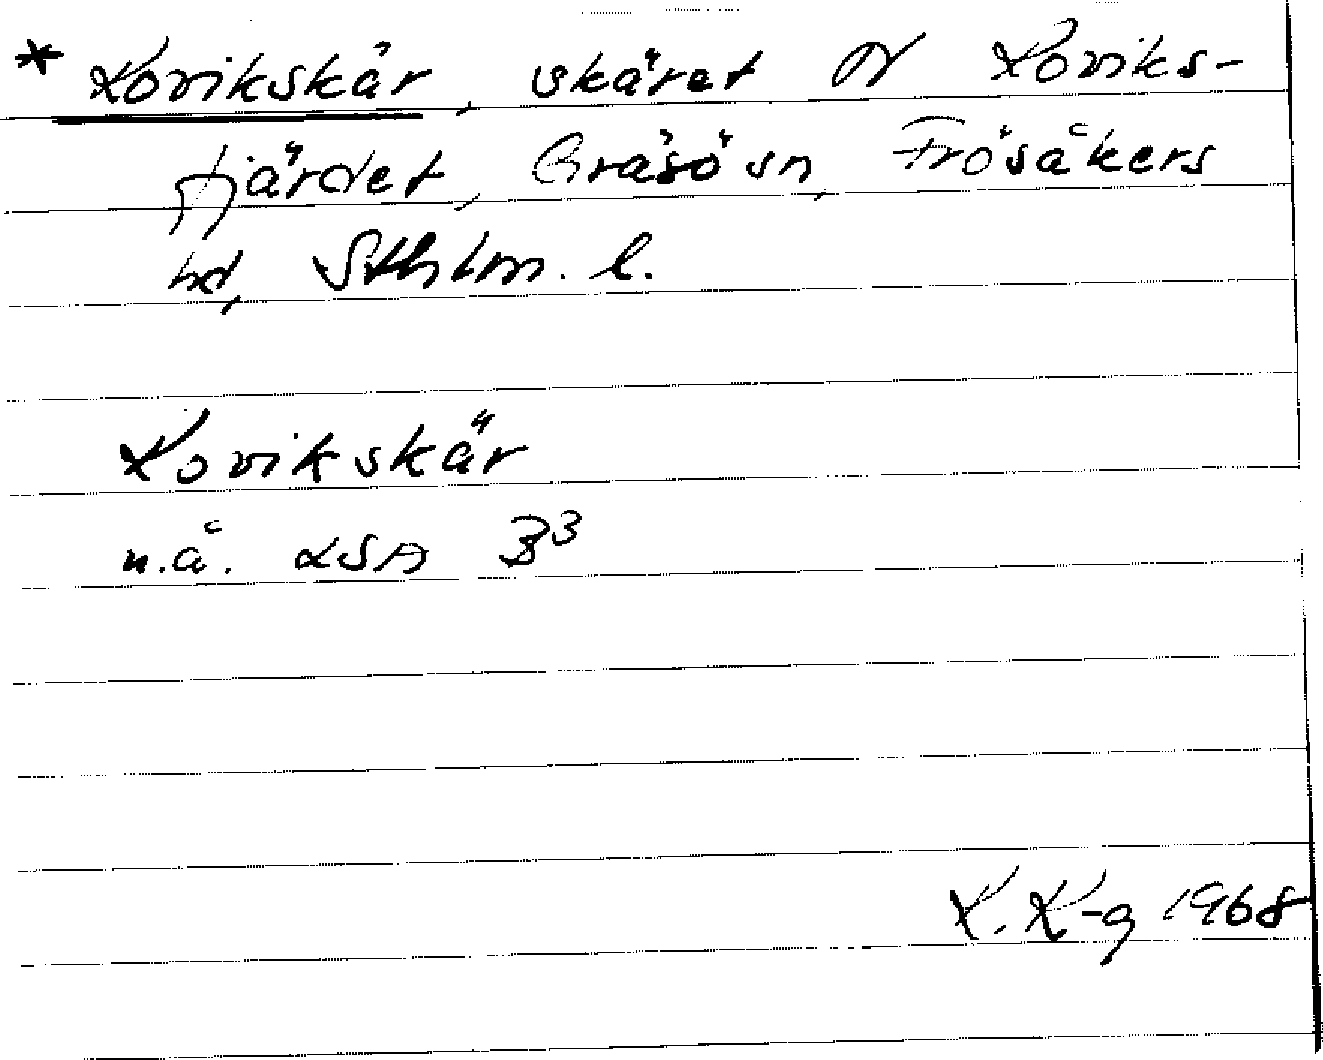 * Kovikskär, skäret N Koviks-
fjärdet, Gräsö sn, Frösåkers
hd, Sthlm. l.
Kovikskär
n.å. LSA B3
K. K-g 1968